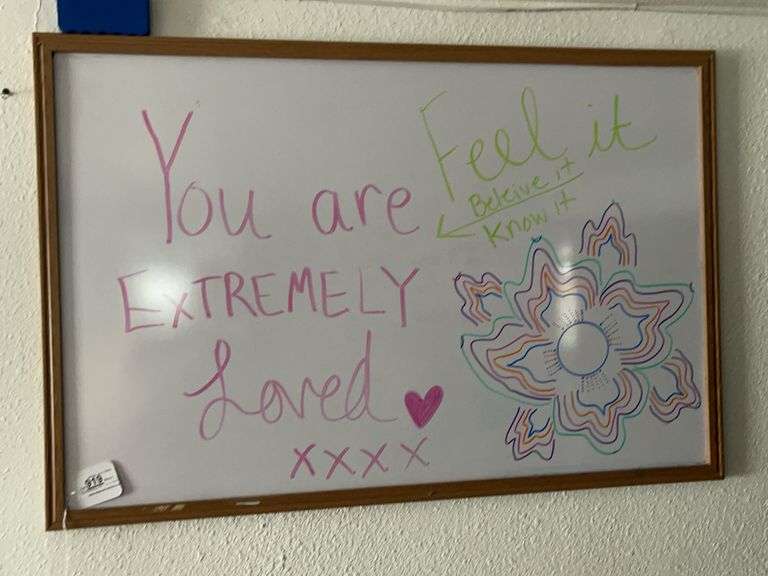 You are
EXTREMELY
Loved
xxxx
Feel it
Beleive it
Know it
919